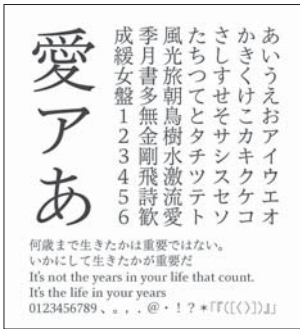 愛アあ
あいうえおアイウエオ
かきくけこカキクケコ
さしすせそサシスセソ
たちつてとタチツテト
風光旅朝鳥樹水激流愛
季月書多無金剛飛詩歓
成緩女盤123456
何歳まで生きたかは重要ではない。
いかにして生きたかが重要だ
It's not the years in your life that count.
It's the life in your years
0123456789 、。，．@・！？＊「『([〈〉])』」